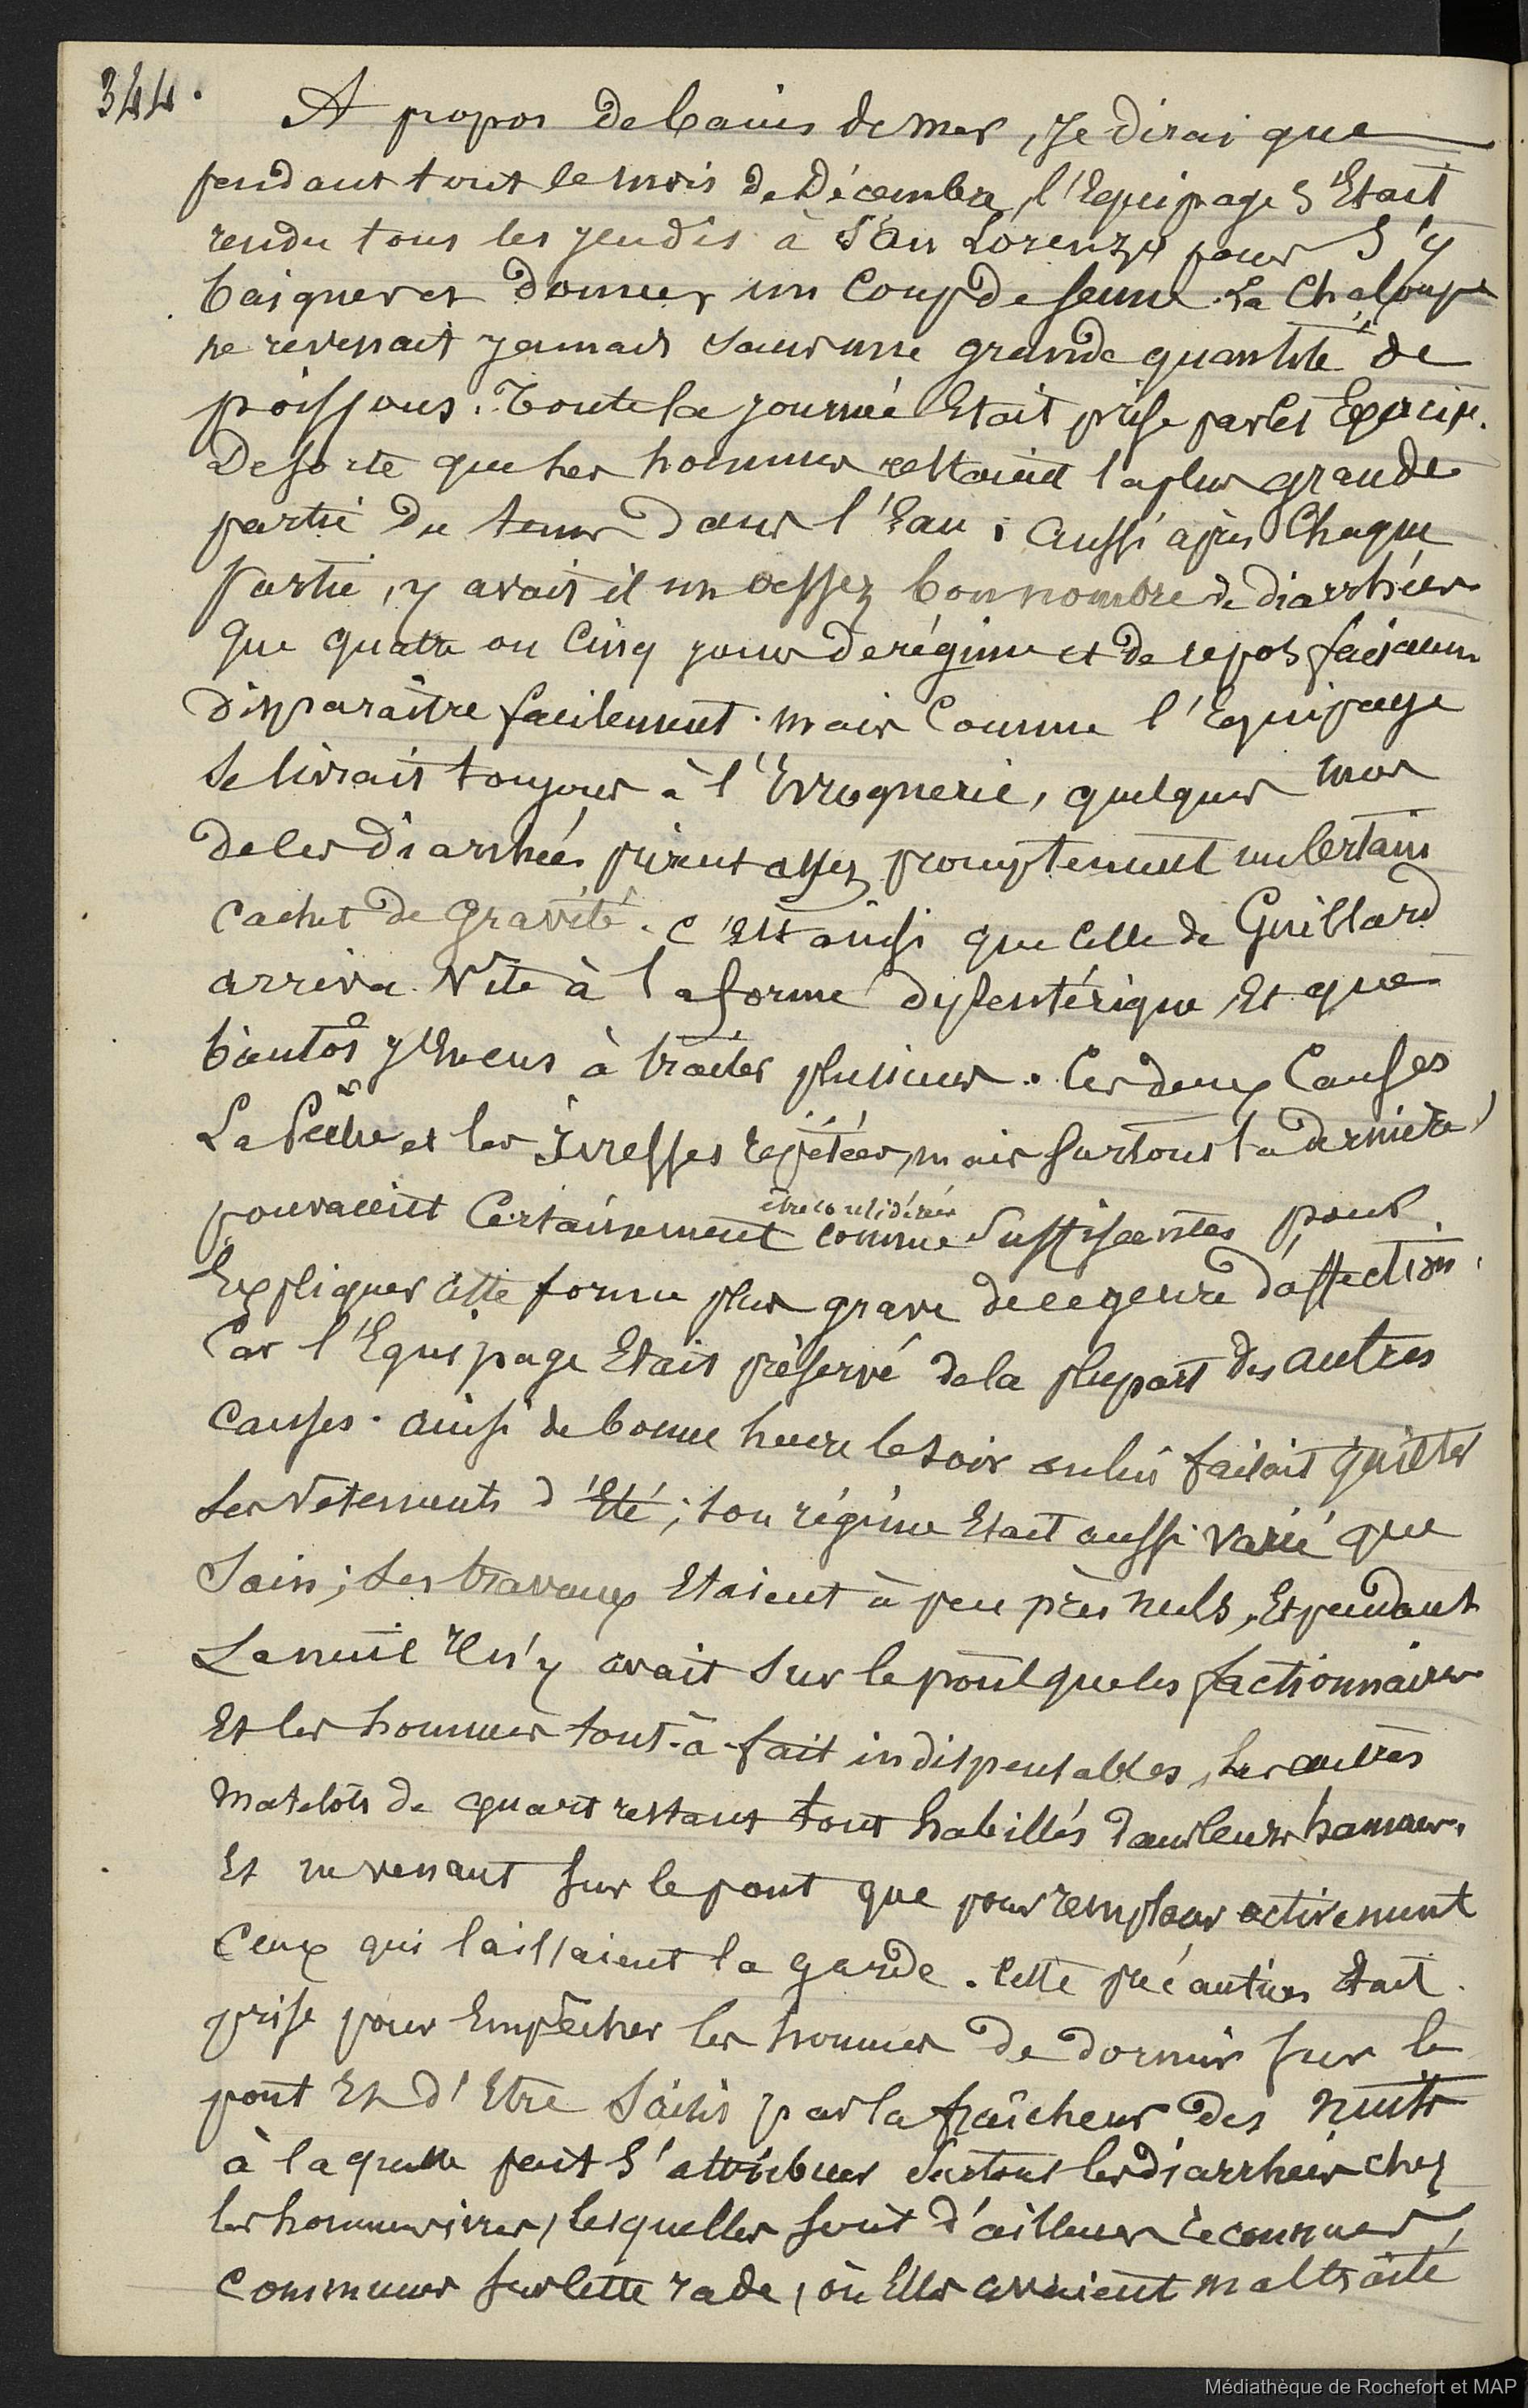 344.
A propos de bains de mer, Je dirai que
pendant tout le mois de Décembre, l'Equipage s'Etait
rendu tous les jeudis à San Lorenzo pour s'y
baigner et donner un coup de senne. La Chaloupe
ne revenait jamais sans une grande quantité de
poissons. Toute la journée Etait prise par les Exercic.
De sorte que les hommes restaient la plus grande
partie du tems dans l'Eau ; aussi après Chaque
Partie, y avait il un assez bon nombre de diarrhées
que quatre ou Cinq jours de régime et de repos faisaient
disparaître facilement. mais Comme l'Equipage
se livrait toujours à l'Ivrognerie, quelques unes
de ces diarrhées prirent assez promptement un Certain
cachet de gravité. C'Est ainsi que Celle de Guillard
arriva vite à la forme dyssentérique Et que
bientôt j'En eus à traiter plusieurs. Ces deux Causes
La Pêche et les Ivresses répétées, mais surtout la dernière,
pouvaient Certainement être considérées comme suffisantes pour
Expliquer Cette forme plus grave de ce genre d'affection.
Car l'Equipage Etait préservé de la plupart des autres
Causes. ainsi de bonne heure le soir on lui faisait quitter
ses vêtements d'Eté ; son régime Etait aussi varié que
Sain ; ses travaux Etaient à peu près nuls, Et pendant
La nuit Il n'y avait sur le pont que les factionnaires
Et les hommes tout-à-fait indispensables, les autres
matelots de quart restant tout habillés dans leurs hamacs,
Et ne venant sur le pont que pour remplacer activement
Ceux qui laissaient la garde. Cette précaution Etait
prise pour Empêcher les hommes de dormir sur le
pont Et d'Etre saisis par la fraîcheur des nuits
à laquelle peut s'attribuer surtout les diarrhées chez
les hommes ivres, lesquelles sont d'ailleurs reconnues
communes sur cette rade, où Elles avaient maltraité
Médiathèque de Rochefort et MAP